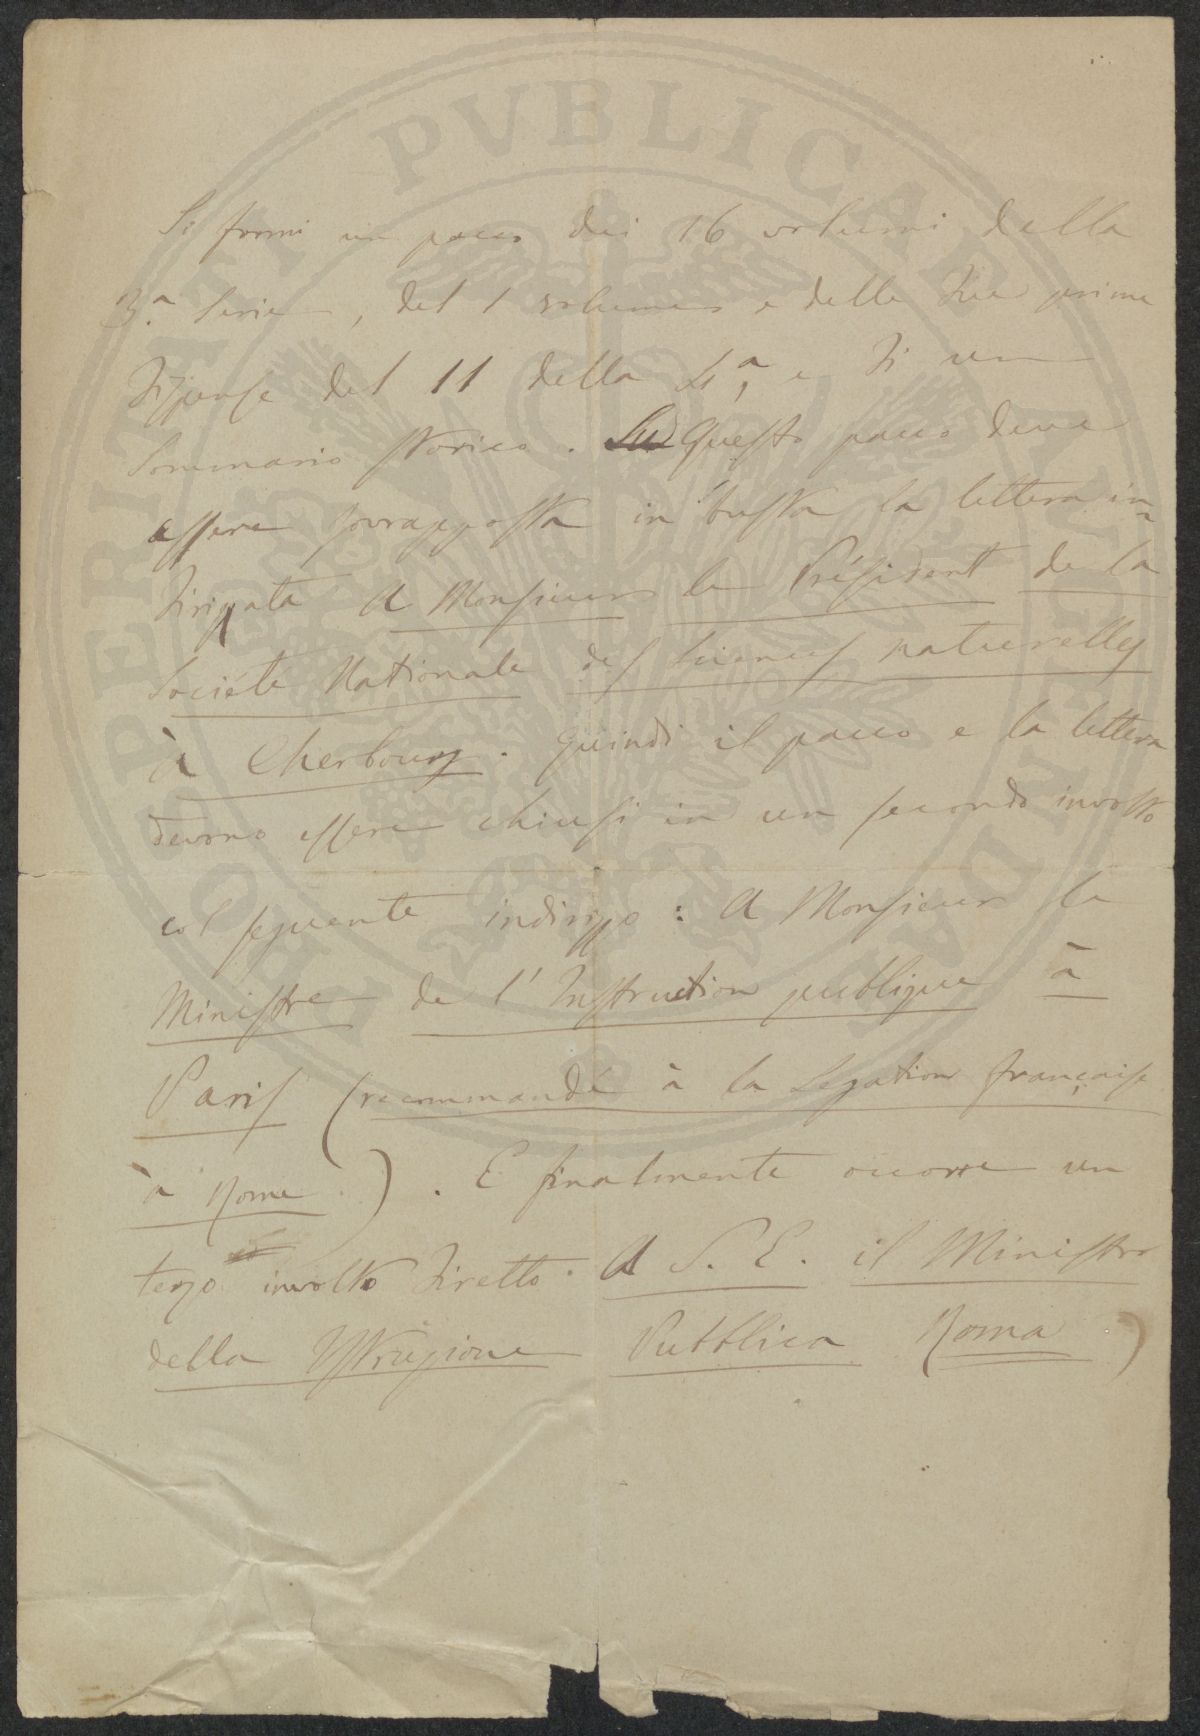 PROSPERITATI PVBLICAE AVGENDAE
Si formi un pacco dei 16 volumi della
3.a Serie, del 1 volume e delle due prime
dispense del 11 della 4a, e di un
Sommario storico. Su Questo pacco deve
essere sovrapposta in busta la lettera in=
dirizzata A Monsieur le Président de la
Société Nationale des Sciences naturelles
à Cherbourg. Quindi il pacco e la lettera
devono essere chiusi in un secondo involto
col seguente indirizzo: A Monsieur le
Ministre de l'Instruction publique à
Paris (recommandé à la Legation française
à Rome). E finalmente occorre un
terzo involto diretto. A S. E. il Ministro
della Istruzione Pubblica Roma)